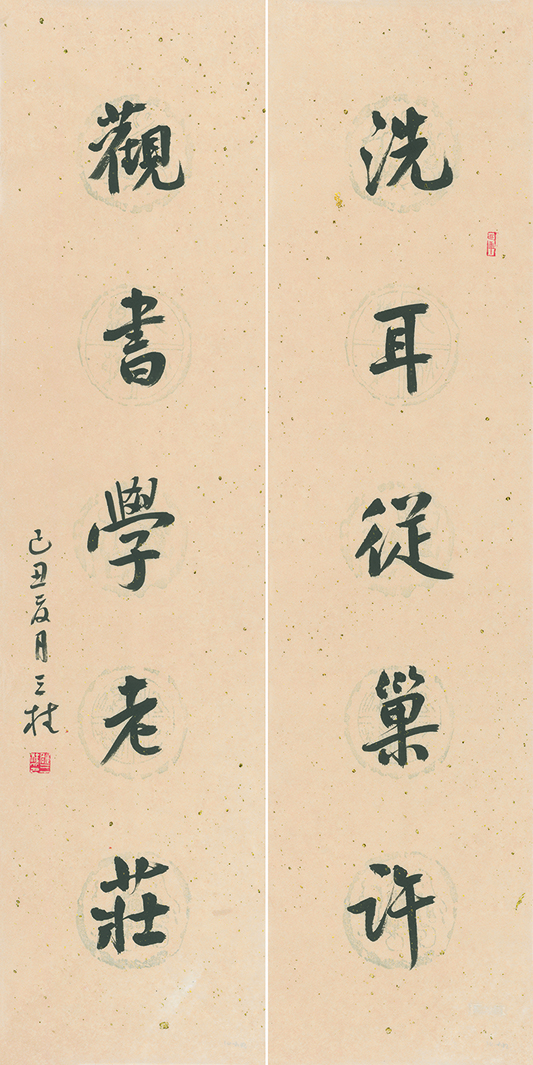 洗耳從巢許
觀書學老莊
己丑夏月三桂